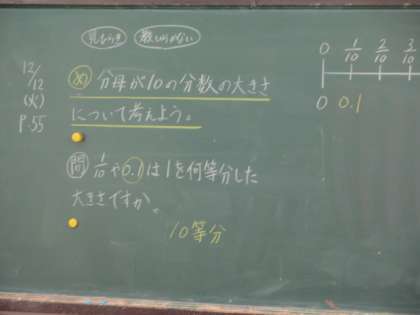 見とおり 数しらべない
12/12
(火)
P.55
め 分母が10の分数の大きさ
について考えよう。
問 1/10や0.1は1を何等分した
大きさですか。
10等分
0 1/10 2/10 3/10
0 0.1